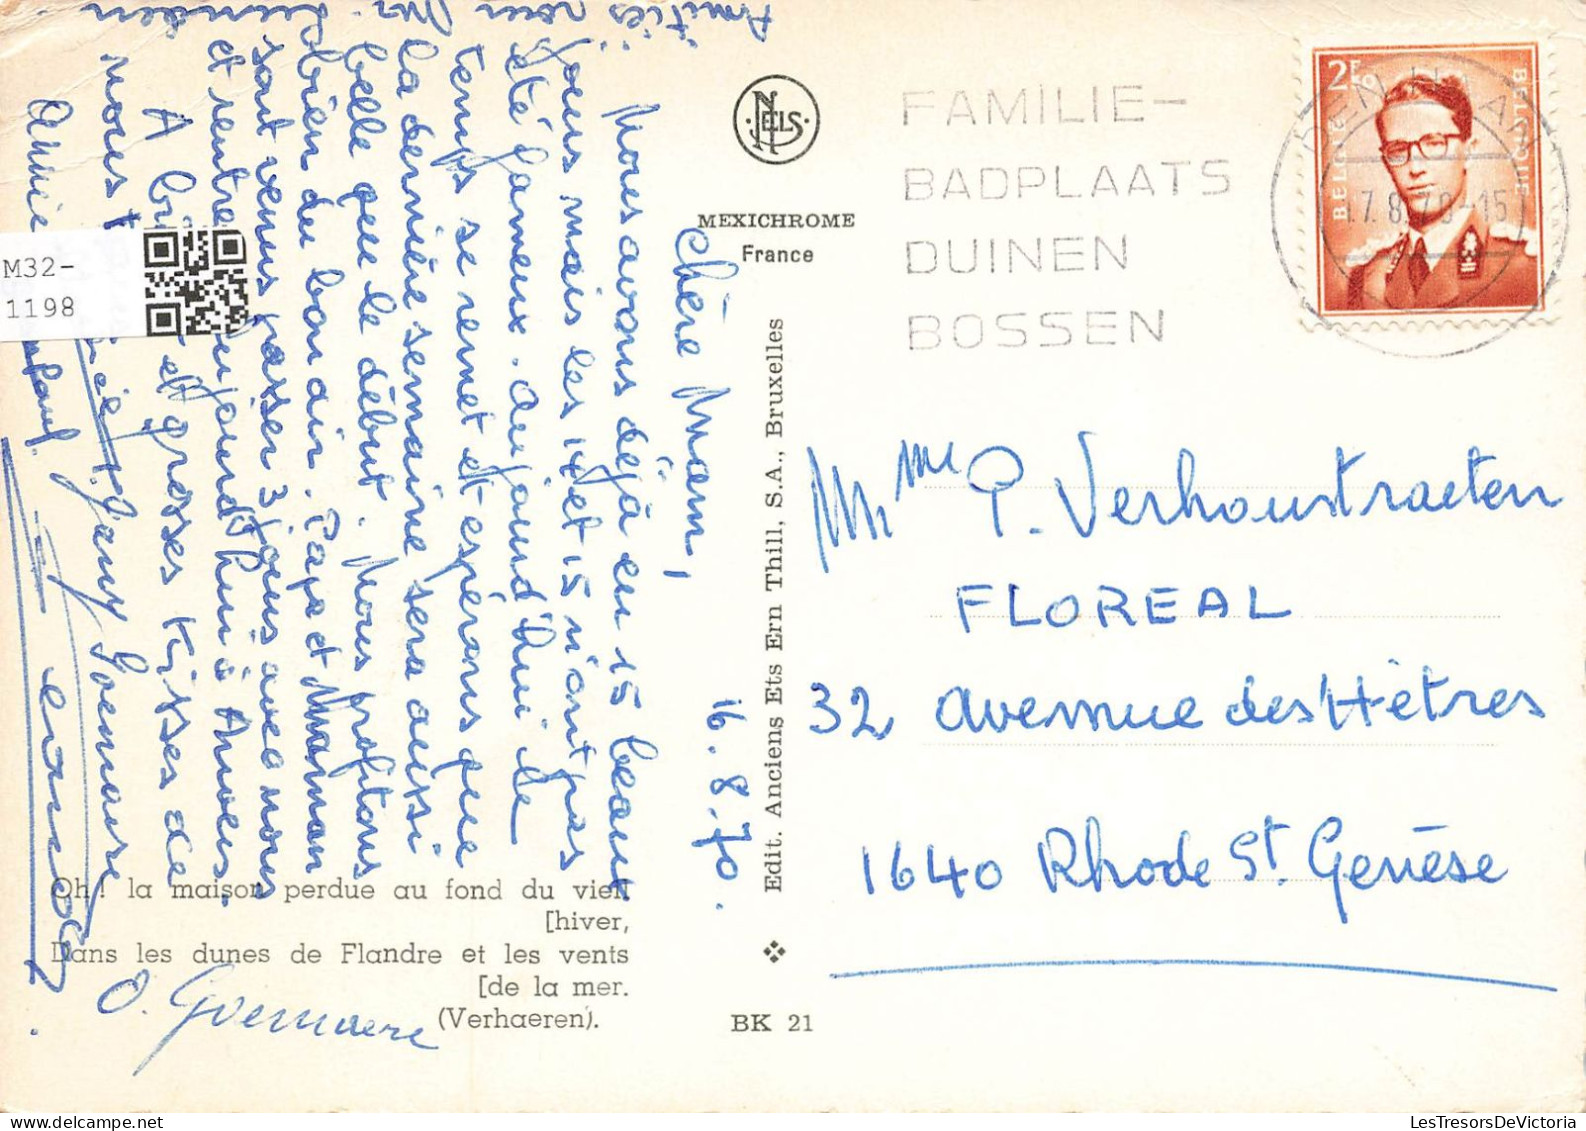 Chère Mam,
16.8.70.
Nous avons déjà eu 15 beaux
jours mais les 14 et 15 n'ont pas
été fameux. Aujourd'hui le
temps se remet et espérons que
la dernière semaine sera aussi
belle que le début. Nous profitons
bien du bon air. Papa et Maman
sont venus passer 3 jours avec nous
et rentrent aujourd'hui à Anvers.
A et grosses kisses de
nous
Annie
Jany Goemaere
O. Goemaere
Amitiés pour
M32-
1198
NELS
MEXICHROME
France
Edit. Anciens Ets Ern Thill, S.A., Bruxelles
BK 21
Oh! la maison perdue au fond du vieil
[hiver,
Dans les dunes de Flandre et les vents
[de la mer.
(Verhaeren).
FAMILIE-
BADPLAATS
DUINEN
BOSSEN
2F50
BELGIE
BELGIQUE
17.8.70-15
Mme P. Verhoustraeten
FLOREAL
32 avenue des Hêtres
1640 Rhode St. Genèse
LesTresorsDeVictoria